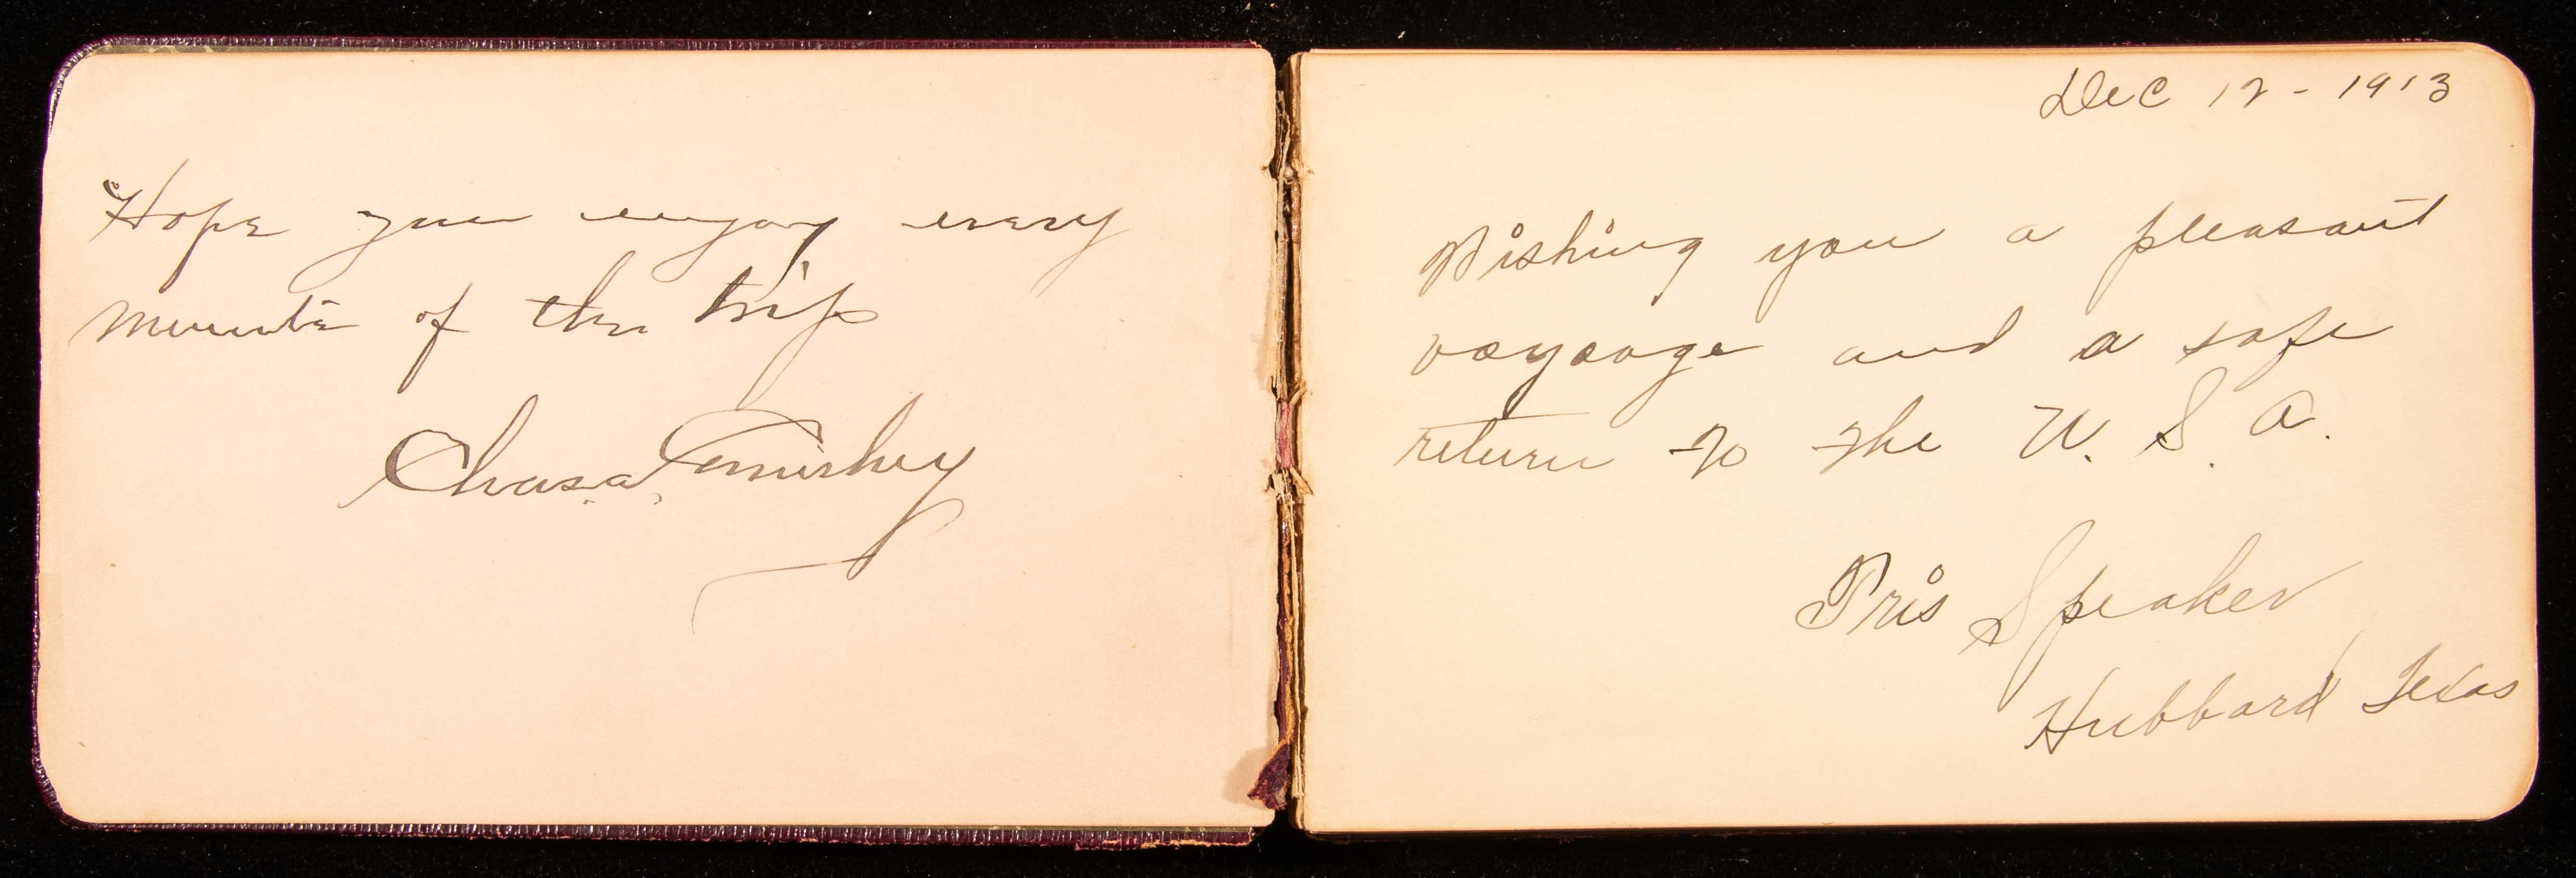 Hope you enjoy every
minute of the trip
Chas. A. Comiskey
Dec 12 - 1913
Wishing you a pleasant
voyage and a safe
return to the U. S. A.
Tris Speaker
Hubbard Texas